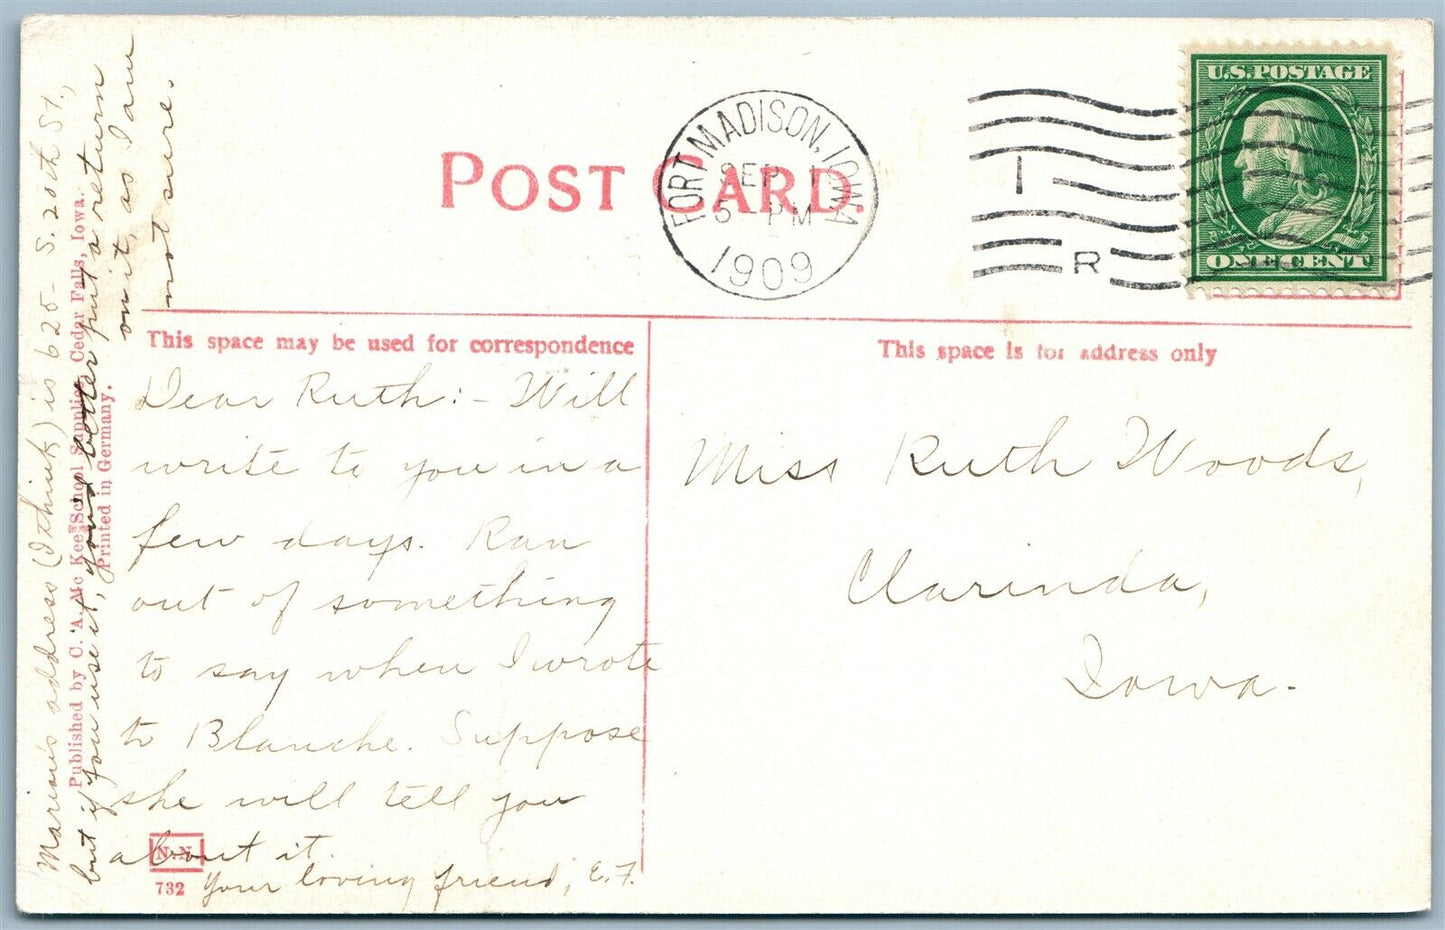 POST CARD.
FORT MADISON, IOWA
SEP 1
5-PM
1909
1
R
U.S. POSTAGE
ONE CENT
This space may be used for correspondence
This space is for address only
Dear Ruth:- Will
write to you in a
few days. Ran
out of something
to say when I wrote
to Blanche. Suppose
she will tell you
about it.
Your loving friend, E.F.
Miss Ruth Woods,
Clarinda,
Iowa.
Marion's address (I think) is 625- S. 20th St.,
but if you use it, you'd better put a return
on it, as I am
not sure.
Published by C. A. Mc Kee, School Supplies, Cedar Falls, Iowa.
Printed in Germany.
N.N.
732